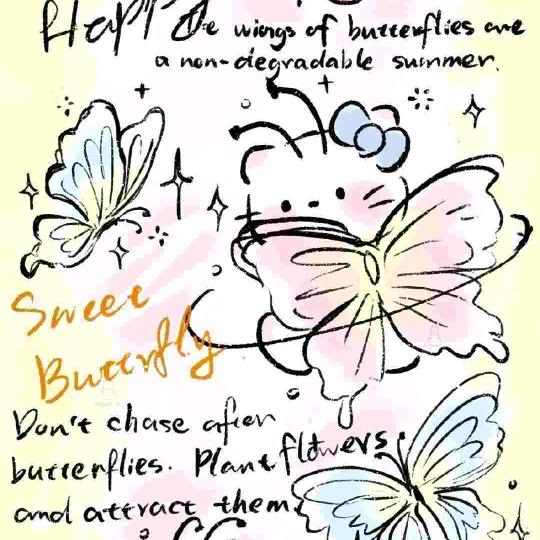 Happy
The wings of butterflies are
a non-degradable summer.
Sweet
Butterfly
Don't chase after
butterflies. Plant flowers
and attract them.